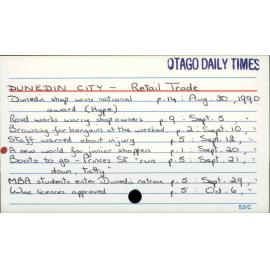 OTAGO DAILY TIMES
DUNEDIN CITY - Retail Trade
Dunedin shop wins national p.14 : Aug. 30, 1990
award (Hype)
Road works worry shop owners p. 9 : Sept. 5, "
Browsing for bargains at the weekend p. 2 : Sept. 10, "
Staff warned about injury p. 5 : Sept. 12, "
A new world for junior shoppers p. 1 : Sept. 20, "
Boots to go - Princes St "run p. 5 : Sept. 21, "
down, tatty"
MBA students enter Dunedin p. 5 : Sept. 29, "
Wine licences approved p. 5 : Oct. 6, "
53/C